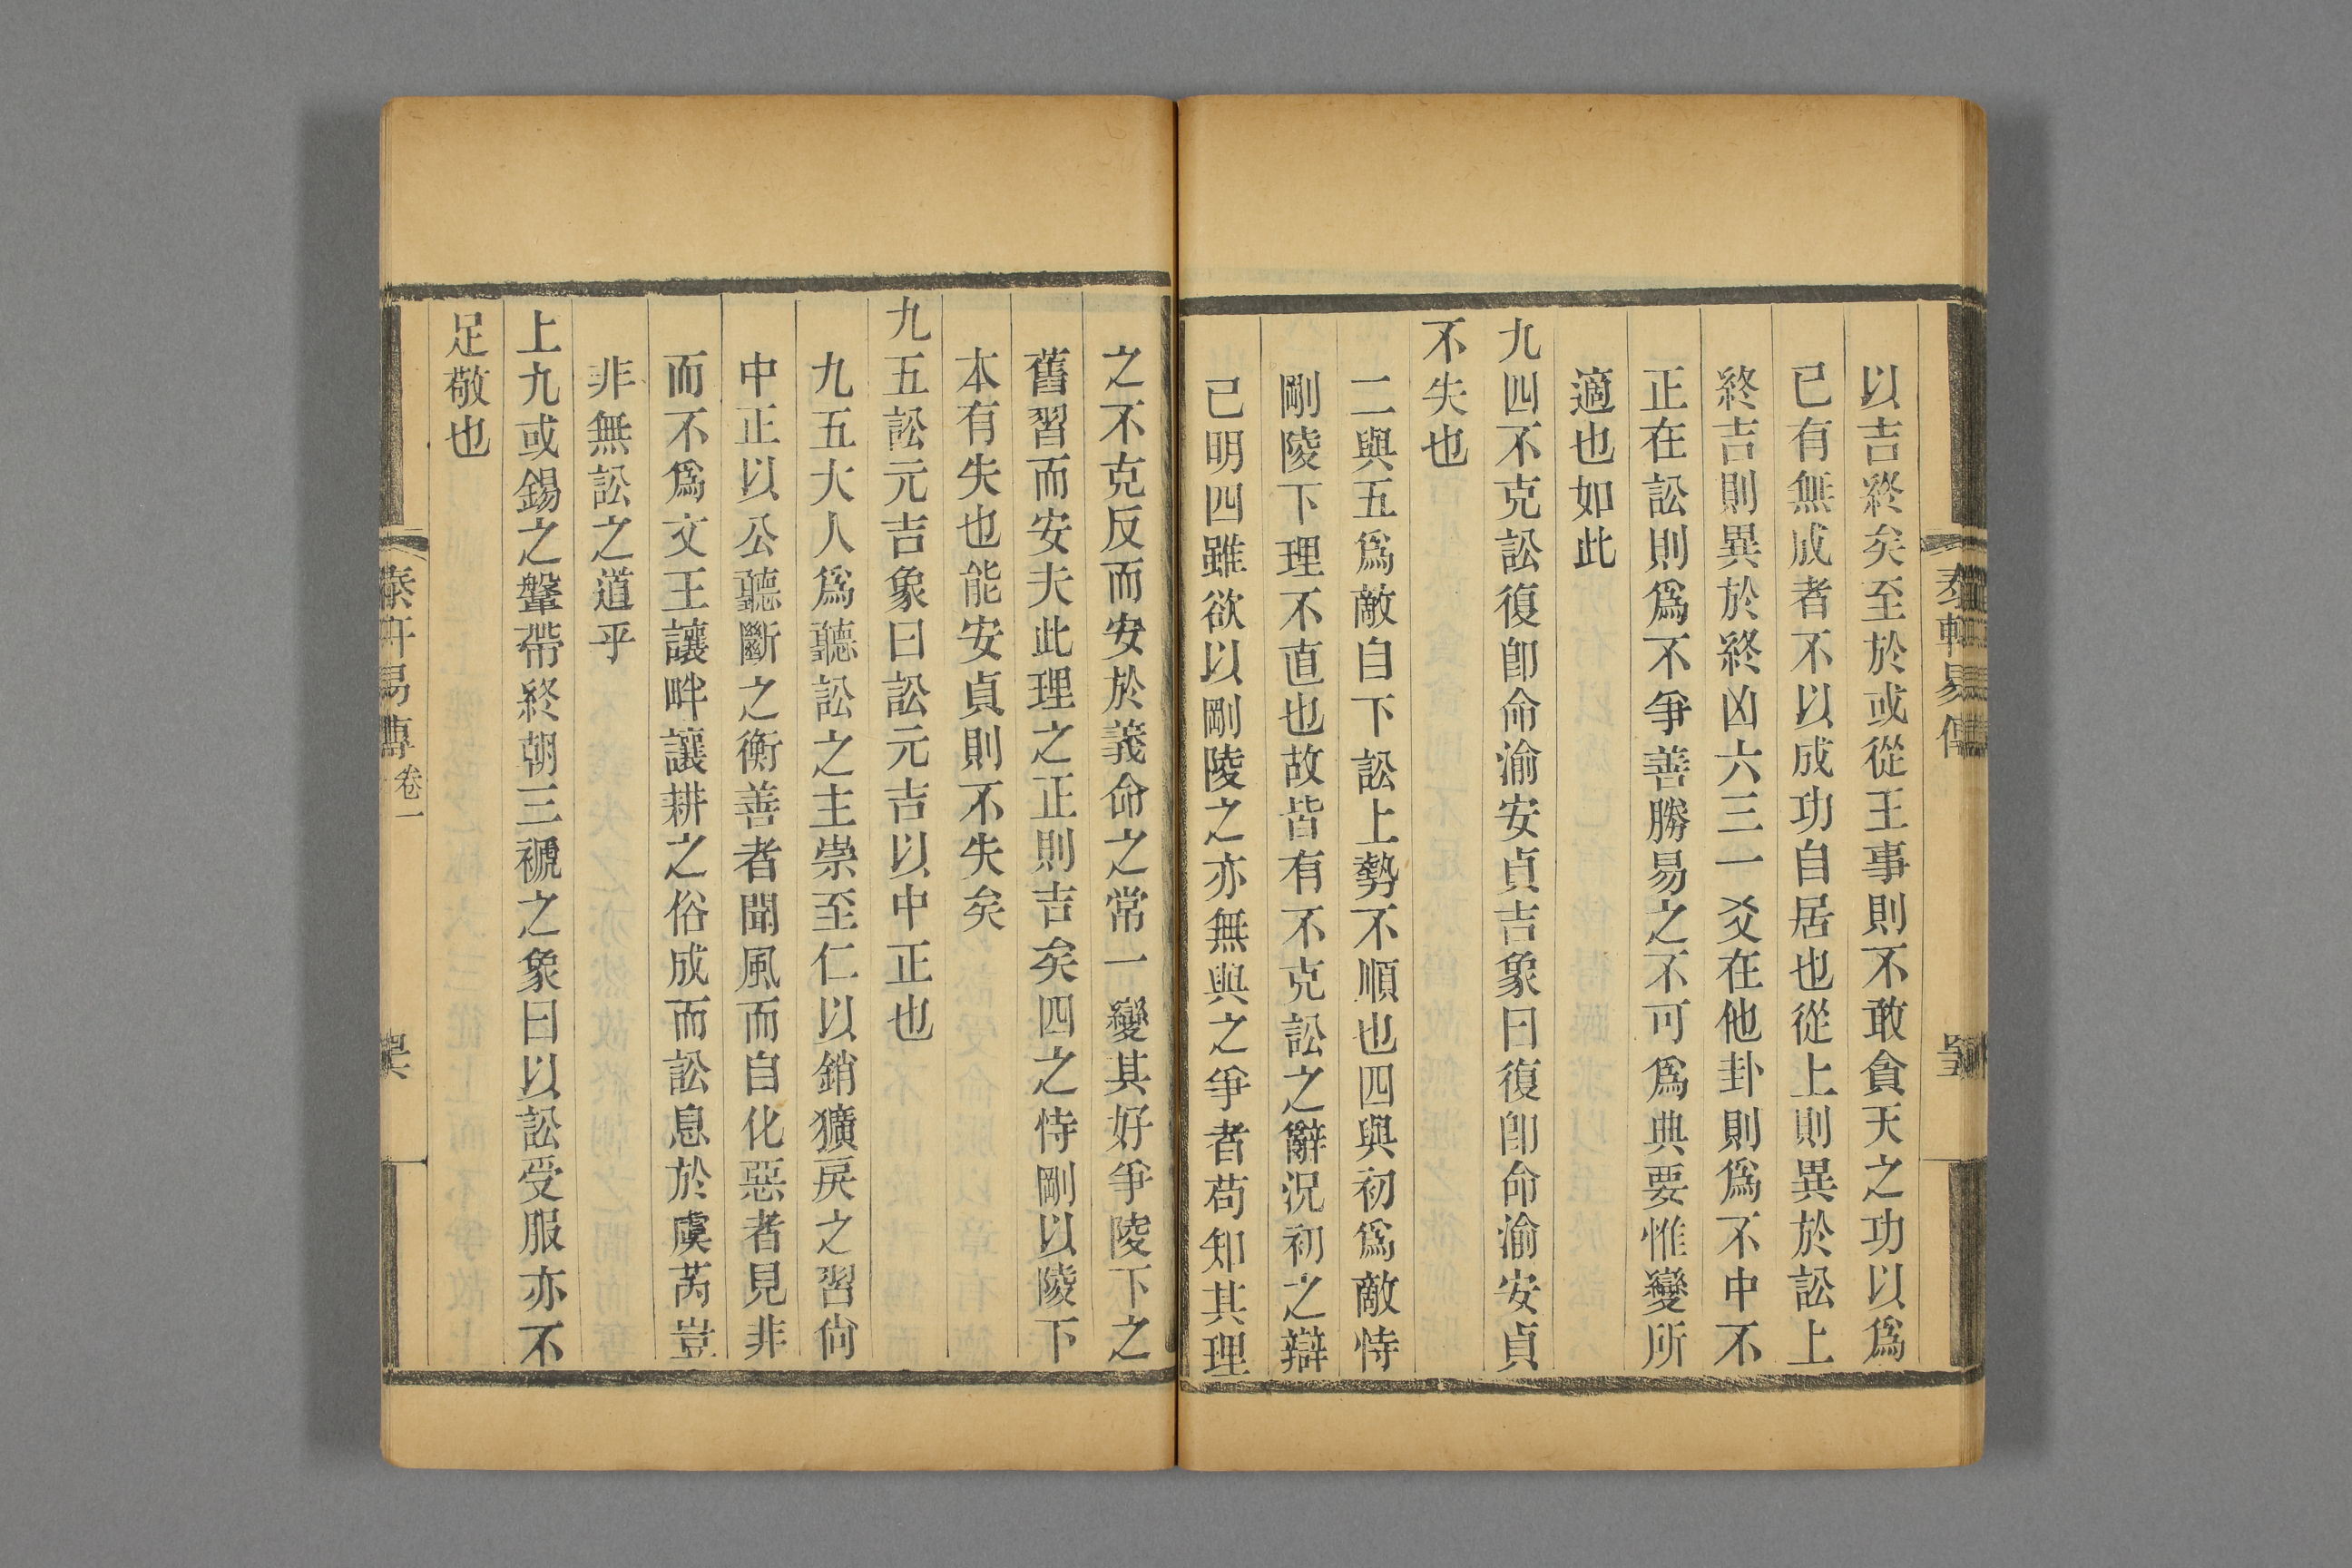 以吉終矣至於或從王事則不敢貪天之功以爲
已有無成者不以成功自居也從上則異於訟上
終吉則異於終凶六三一爻在他卦則爲不中不
正在訟則爲不爭善勝易之不可爲典要惟變所
適也如此
九四不克訟復卽命渝安貞吉象曰復卽命渝安貞
不失也
二與五爲敵自下訟上勢不順也四與初爲敵恃
剛陵下理不直也故皆有不克訟之辭況初之辯
已明四雖欲以剛陵之亦無與之爭者苟知其理
之不克反而安於義命之常一變其好爭陵下之
舊習而安夫此理之正則吉矣四之恃剛以陵下
本有失也能安貞則不失矣
九五訟元吉象曰訟元吉以中正也
九五大人爲聽訟之主崇至仁以銷獷戾之習尙
中正以公聽斷之衡善者聞風而自化惡者見非
而不爲文王讓畔讓耕之俗成而訟息於虞芮豈
非無訟之道乎
上九或錫之鞶帶終朝三褫之象曰以訟受服亦不
足敬也
易傳 卷一